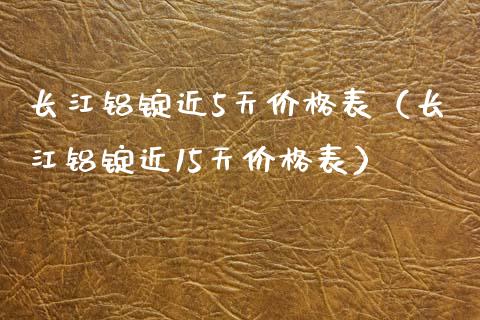 长江铝锭近5天价格表（长
江铝锭近15天价格表）